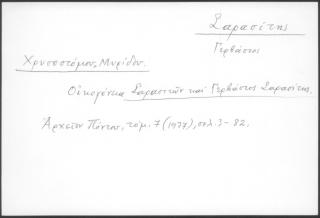 Σαρασίτης
Γερβάσιος
Χρυσοστόμου, Μυρίδου.
Οικογένεια Σαρασιτών και Γερβάσιος Σαρασίτης.
Αρχείον Πόντου, τόμ. 7 (1977), σελ. 3-82.